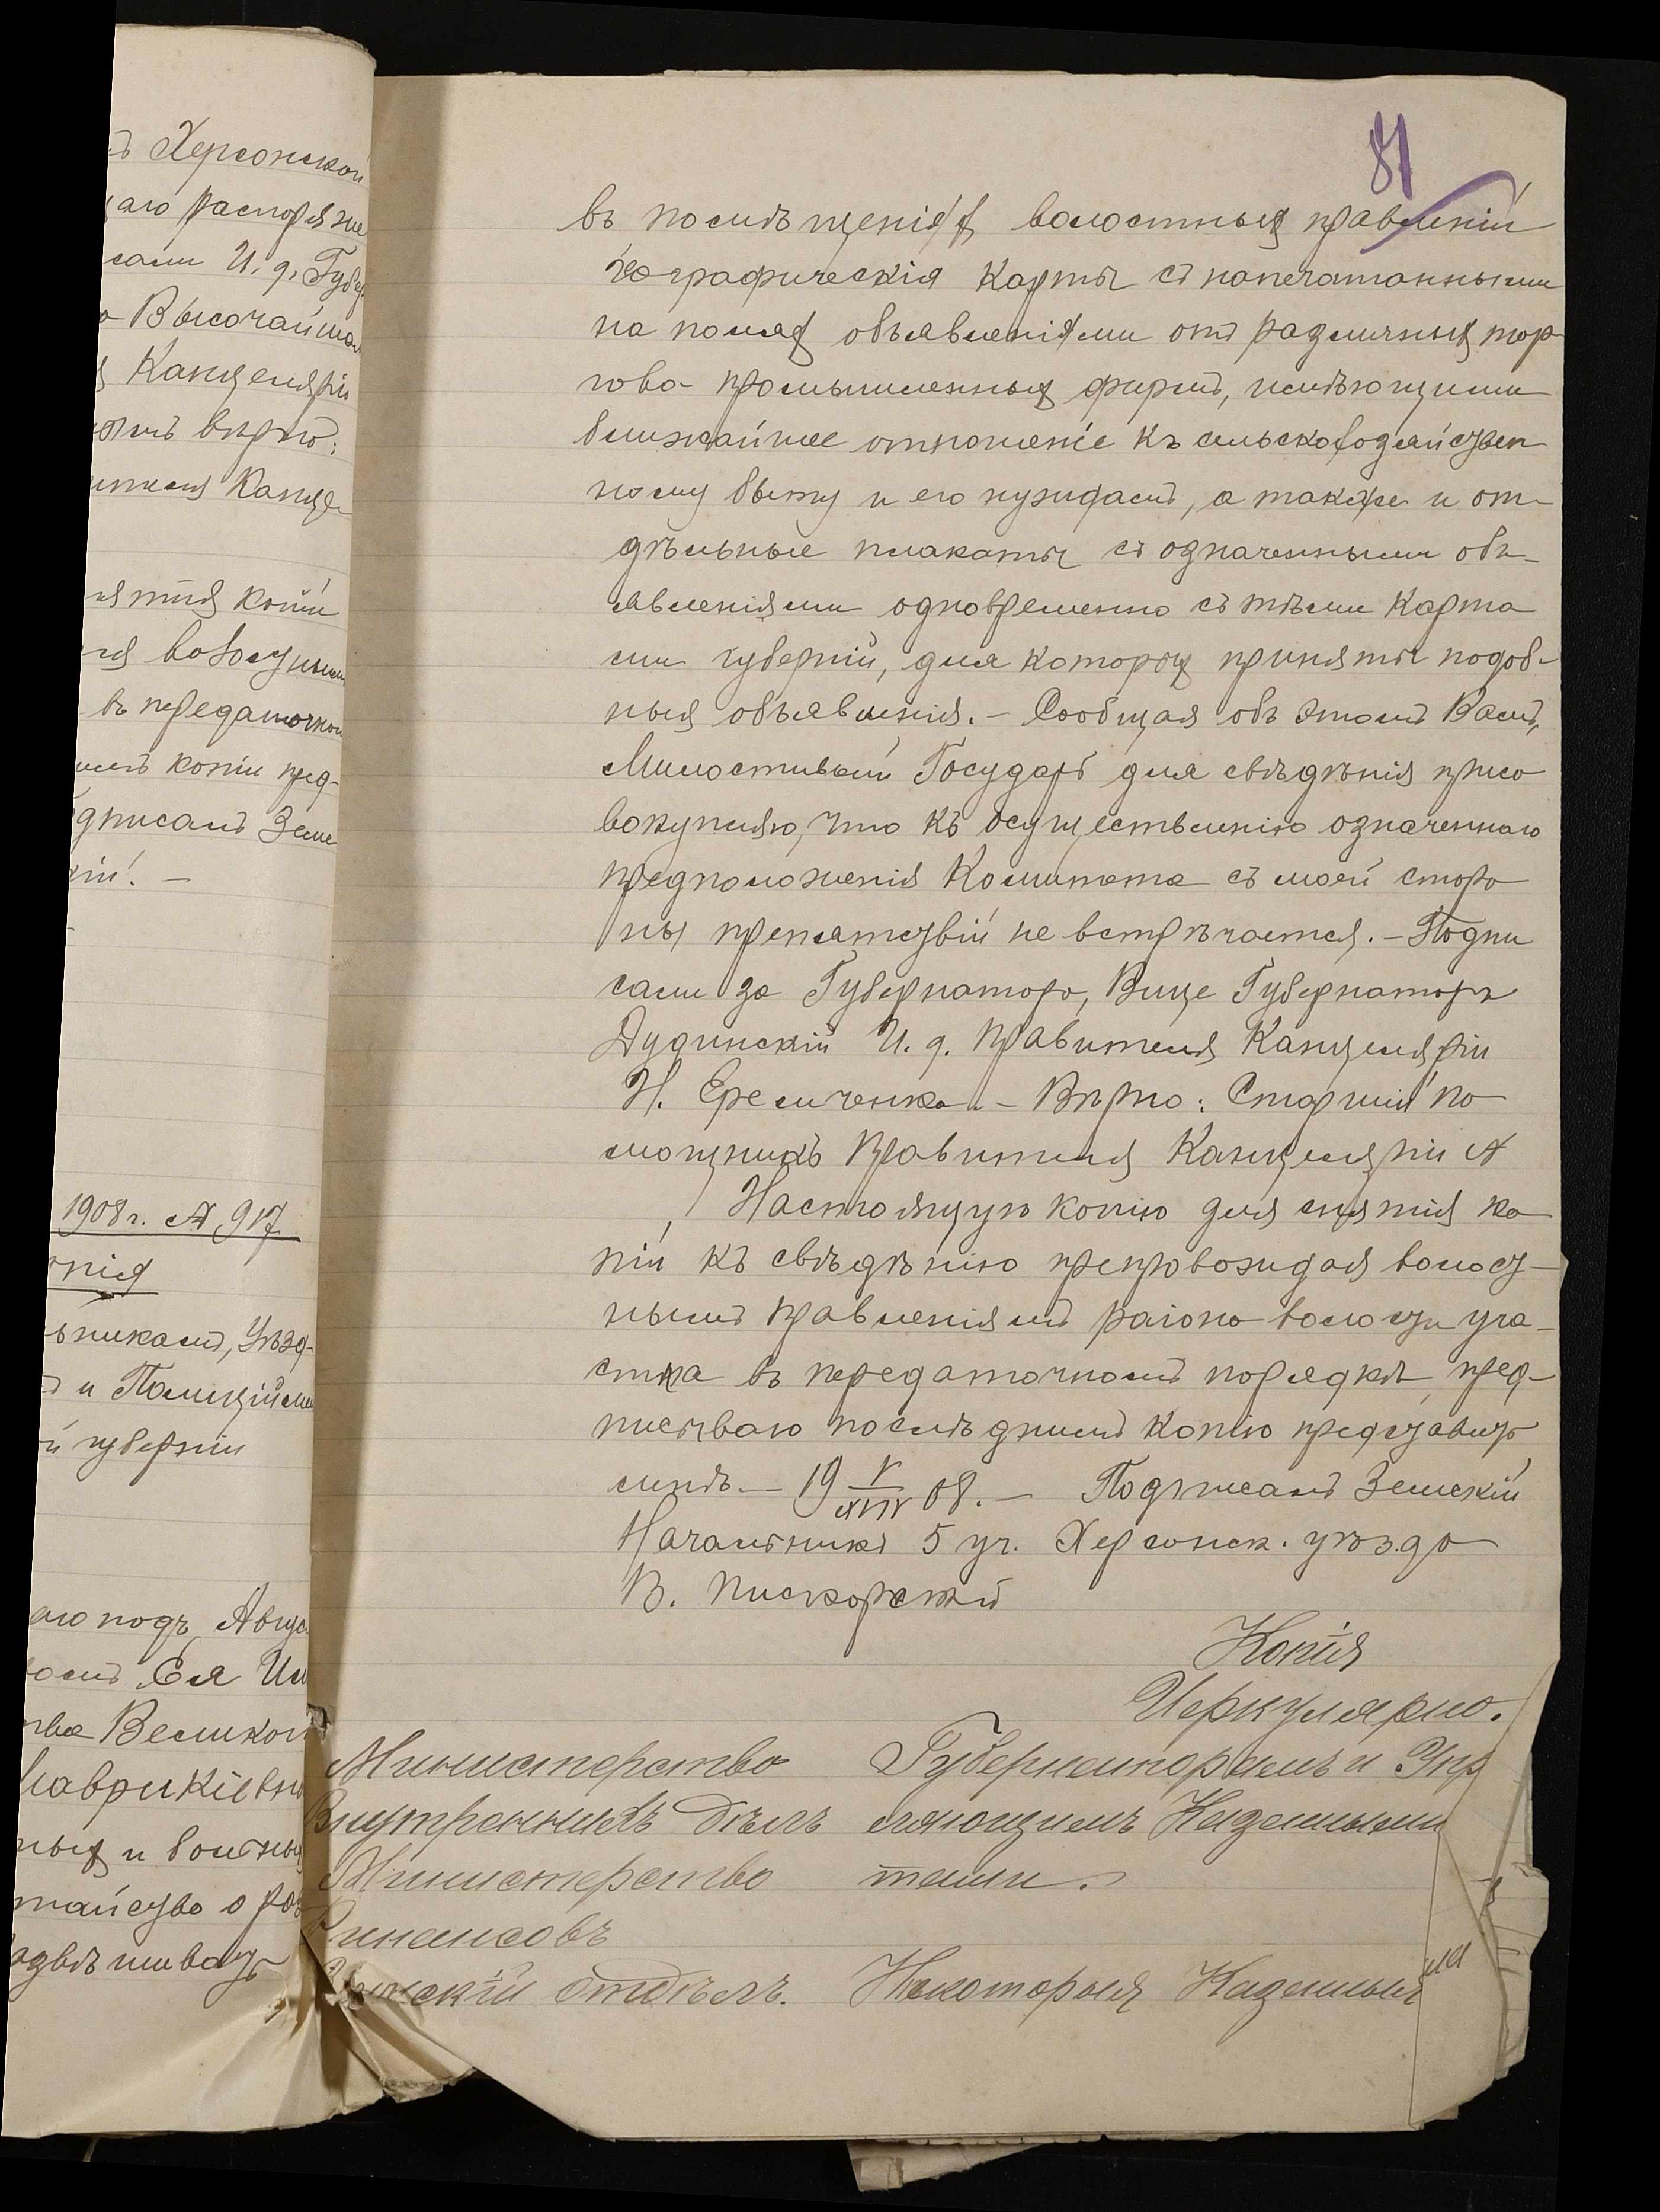 ъ Херсонской
аго распоряже
сали И. д. Губер
Высочайшая
Канцеляріи
вѣрно:
Канце
нятія копіи
волостнымъ
въ передаточномъ
копіи пред-
дписалъ Земс
кій. —
1908 г. № 917
нія
ьникамъ, Уѣзд-
и Полицейскимъ
й губерніи
аго подъ Август
Ея Им
тва Великой
Маврикіевны
ныхъ и больныхъ
о раз
81
въ помѣщеніях волостных правленій
географическія карты съ напечатанными
на полях объявленіями отъ различных тор
гово-промышленных фирмъ, имѣющими
ближайшее отношеніе къ сельскохозяйствен
ному быту и его нуждамъ, а также и от-
дѣльные плакаты съ означенными объ-
явленіями одновременно съ тѣми карта
ми губерній, для которых приняты подоб-
ныя объявленія. — Сообщая объ этомъ Вамъ,
Милостивый Государь для свѣдѣнія присо
вокупляю, что къ осуществленію означеннаго
предположенія Комитета съ моей сторо
ны препятствій не встрѣчается. — Подпи
сали за Губернатора, Вице Губернаторъ
Дудинскій И. д. Правителя Канцеляріи
Н. Еремченко. — Вѣрно: Старшій по
мощникъ Правителя Канцеляріи
Настоящую копію для снятія ко
піи къ свѣдѣнію препровождая волост-
нымъ правленіямъ района волости уча-
стка въ передаточномъ порядкѣ, пред-
писываю послѣднимъ копію представить
мнѣ. — 19 V/XVIX 08. — Подписалъ Земскій
Начальникъ 5 уч. Херсонск. уѣзда
В. Пискорскій
Копія
Циркулярно.
Министерство Губернаторамъ и Упр
Внутреннихъ дѣлъ ляющимъ Казенными
Министерство
Финансовъ
отдѣлъ. Нѣкоторыя Казенныя